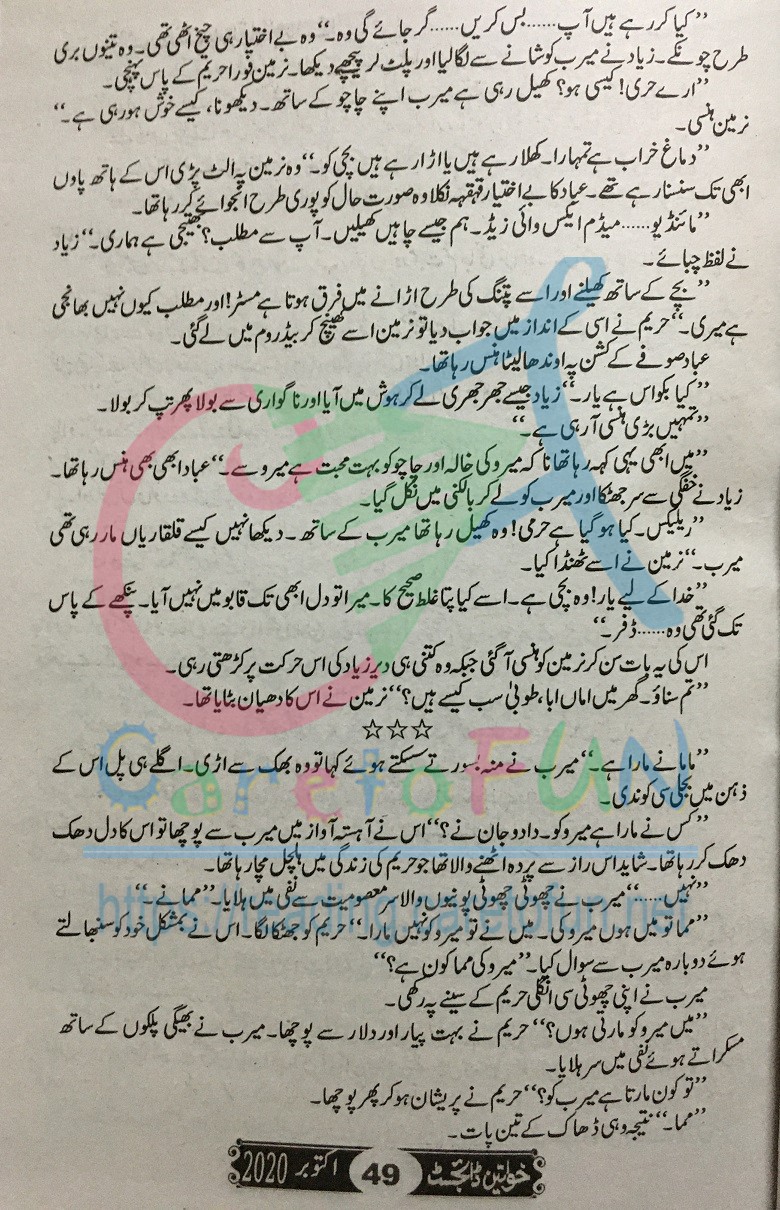 ”کیا کر رہے ہیں آپ……بس کریں……گر جائے گی وہ۔“ وہ بے اختیار ہی چیخ اٹھی تھی۔ وہ تینوں بری
طرح چونکے۔ زیاد نے میرب کو شانے سے لگا لیا اور پلٹ کر پیچھے دیکھا۔ نرمین فوراً حریم کے پاس پہنچی۔
”ارے حری! کیسی ہو؟ کھیل رہی ہے میرب اپنے چاچو کے ساتھ۔ دیکھو نا، کیسے خوش ہو رہی ہے۔“
نرمین ہنسی۔
”دماغ خراب ہے تمہارا۔ کھلا رہے ہیں یا اڑا رہے ہیں بچی کو۔“ وہ نرمین پہ الٹ پڑی اس کے ہاتھ پاؤں
ابھی تک سنسنا رہے تھے۔ عباد کا بے اختیار قہقہہ نکلا وہ صورت حال کو پوری طرح انجوائے کر رہا تھا۔
”مائنڈ یو……میڈم ایکس وائی زیڈ۔ ہم جیسے چاہیں کھیلیں۔ آپ سے مطلب؟ بھتیجی ہے ہماری۔“ زیاد
نے لفظ چبائے۔
”بچے کے ساتھ کھیلنے اور اسے پتنگ کی طرح اڑانے میں فرق ہوتا ہے مسٹر! اور مطلب کیوں نہیں بھانجی
ہے میری۔“ حریم نے اسی کے انداز میں جواب دیا تو نرمین اسے کھینچ کر بیڈ روم میں لے گئی۔
عباد صوفے کے کشن پہ اوندھا لیٹا ہنس رہا تھا۔
”کیا بکواس ہے یار۔“ زیاد جیسے جھرجھری لے کر ہوش میں آیا اور ناگواری سے بولا پھر تپ کر بولا۔
”تمہیں بڑی ہنسی آ رہی ہے۔“
”میں ابھی یہی کہہ رہا تھا نا کہ میرو کی خالہ اور چاچو کو بہت محبت ہے میرو سے۔“ عباد ابھی بھی ہنس رہا تھا۔
زیاد نے خفگی سے سر جھٹکا اور میرب کو لے کر بالکنی میں نکل گیا۔
”ریلیکس۔ کیا ہو گیا ہے حرمی! وہ کھیل رہا تھا میرب کے ساتھ۔ دیکھا نہیں کیسے قلقاریاں مار رہی تھی
میرب۔“ نرمین نے اسے ٹھنڈا کیا۔
”خدا کے لیے یار! وہ بچی ہے۔ اسے کیا پتا غلط صحیح کا۔ میرا تو دل ابھی تک قابو میں نہیں آیا۔ پنکھے کے پاس
تک گئی تھی وہ……ڈفر۔“
اس کی یہ بات سن کر نرمین کو ہنسی آ گئی جبکہ وہ کتنی ہی دیر زیاد کی اس حرکت پر کڑھتی رہی۔
”تم سناؤ۔ گھر میں اماں ابا، طوبیٰ سب کیسے ہیں؟“ نرمین نے اس کا دھیان بٹایا تھا۔
☆☆☆
”ماما نے مارا ہے۔“ میرب نے منہ بسورتے سسکتے ہوئے کہا تو وہ بھک سے اڑی۔ اگلے ہی پل اس کے
ذہن میں بجلی سی کوندی۔
”کس نے مارا ہے میرو کو۔ دادو جان نے؟“ اس نے آہستہ آواز میں میرب سے پوچھا تو اس کا دل دھک
دھک کر رہا تھا۔ شاید اس راز سے پردہ اٹھنے والا تھا جو حریم کی زندگی میں ہلچل مچا رہا تھا۔
”نہیں….“ میرب نے چھوٹی چھوٹی پونیوں والا سر معصومیت سے نفی میں ہلایا۔ ”مما نے۔“
”مما تو میں ہوں میرو کی۔ میں نے تو میرو کو نہیں مارا۔“ حریم کو جھٹکا لگا۔ اس نے بمشکل خود کو سنبھالتے
ہوئے دوبارہ میرب سے سوال کیا۔ ”میرو کی مما کون ہے؟“
میرب نے اپنی چھوٹی سی انگلی حریم کے سینے پہ رکھی۔
”میں میرو کو مارتی ہوں؟“ حریم نے بہت پیار اور دلار سے پوچھا۔ میرب نے بھیگی پلکوں کے ساتھ
مسکراتے ہوئے نفی میں سر ہلایا۔
”تو کون مارتا ہے میرب کو؟“ حریم نے پریشان ہو کر پھر پوچھا۔
”مما۔“ نتیجہ وہی ڈھاک کے تین پات۔
خواتین ڈائجسٹ 49 اکتوبر 2020
CaretoFUN
http://reading.caretofun.net